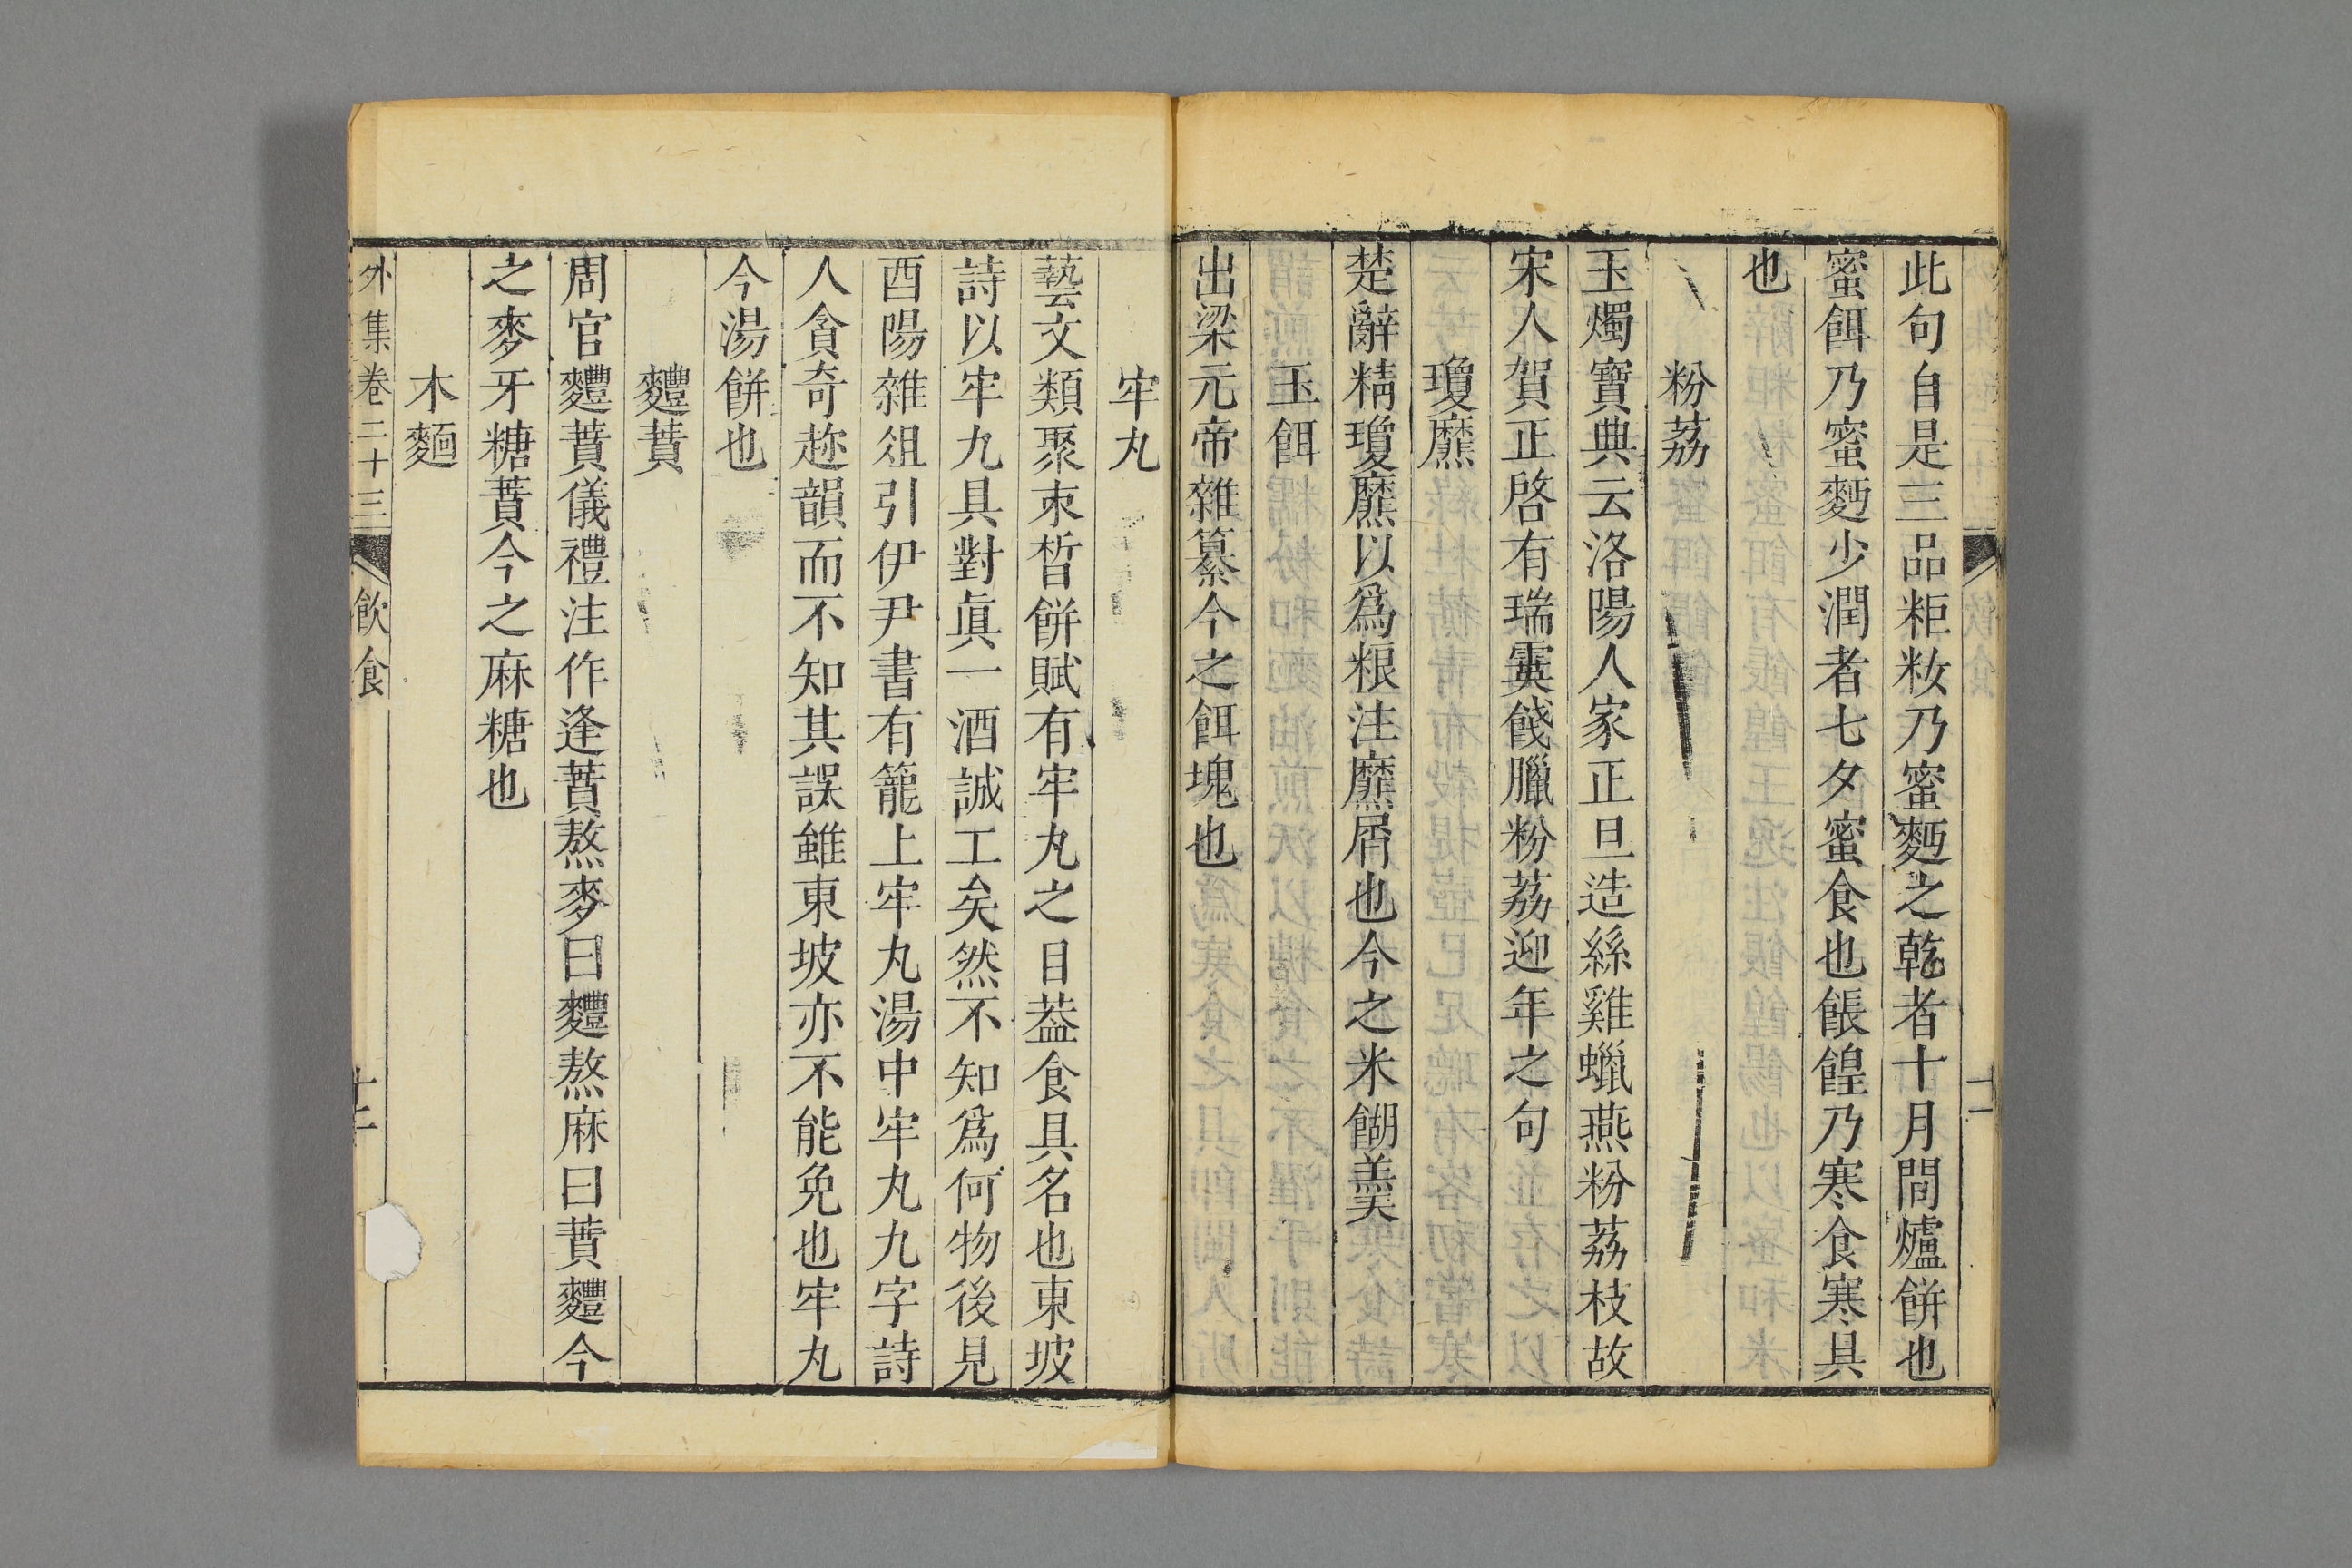 此句自是三品粔籹乃蜜麪之乾者十月間爐餅也
蜜餌乃蜜麪少潤者七夕蜜食也餦餭乃寒食寒具
也
粉荔
玉燭寶典云洛陽人家正旦造絲雞蠟燕粉荔枝故
宋人賀正啓有瑞霙餞臘粉荔迎年之句
瓊爢
楚辭精瓊爢以爲粻注爢屑也今之米餬羹
玉餌
出梁元帝雜纂今之餌塊也
牢丸
藝文類聚朿晳餅賦有牢丸之目葢食具名也東坡
詩以牢九具對眞一酒誠工矣然不知爲何物後見
酉陽雜俎引伊尹書有籠上牢丸湯中牢丸九字詩
人貪奇趂韻而不知其誤雖東坡亦不能免也牢丸
今湯餅也
麷蕡
周官麷蕡儀禮注作逢蕡熬麥曰麷熬麻曰蕡麷今
之麥牙糖蕡今之麻糖也
木麵
外集卷二十三 飲食 十二